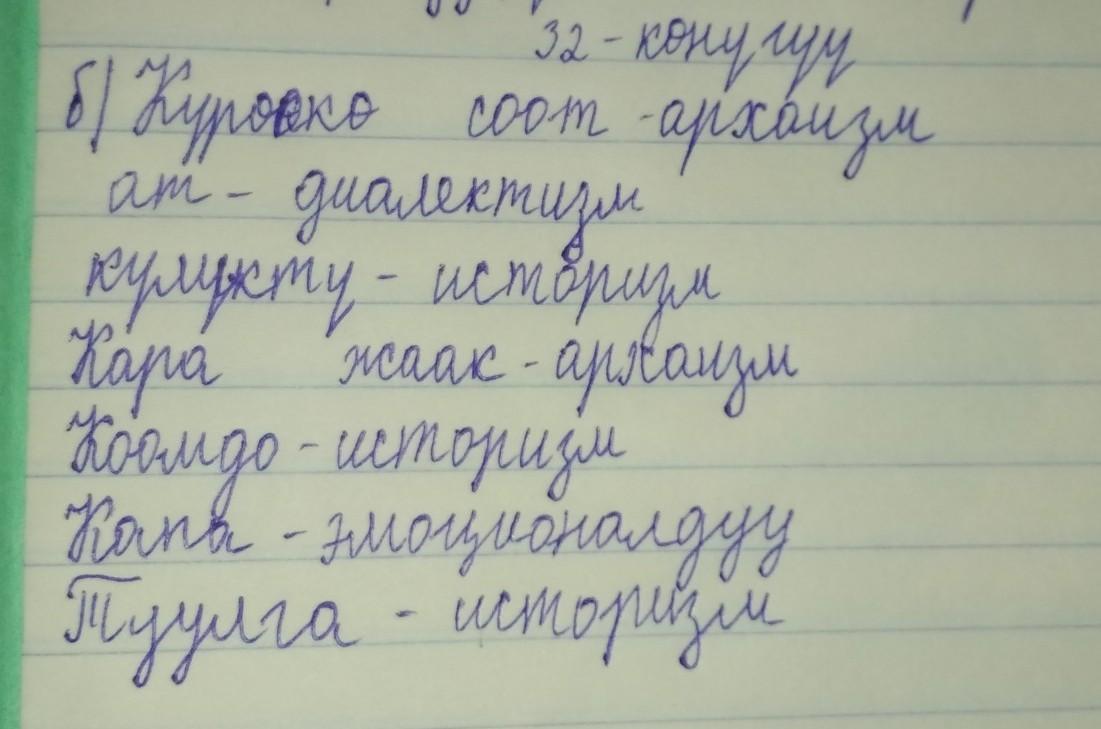 32 - конугуу
б) Куроско соот - архаизм
ат - диалектизм
кулукту - историзм
Кара жаак - архаизм
Коомдо - историзм
Капа - эмоционалдуу
Туулга - историзм